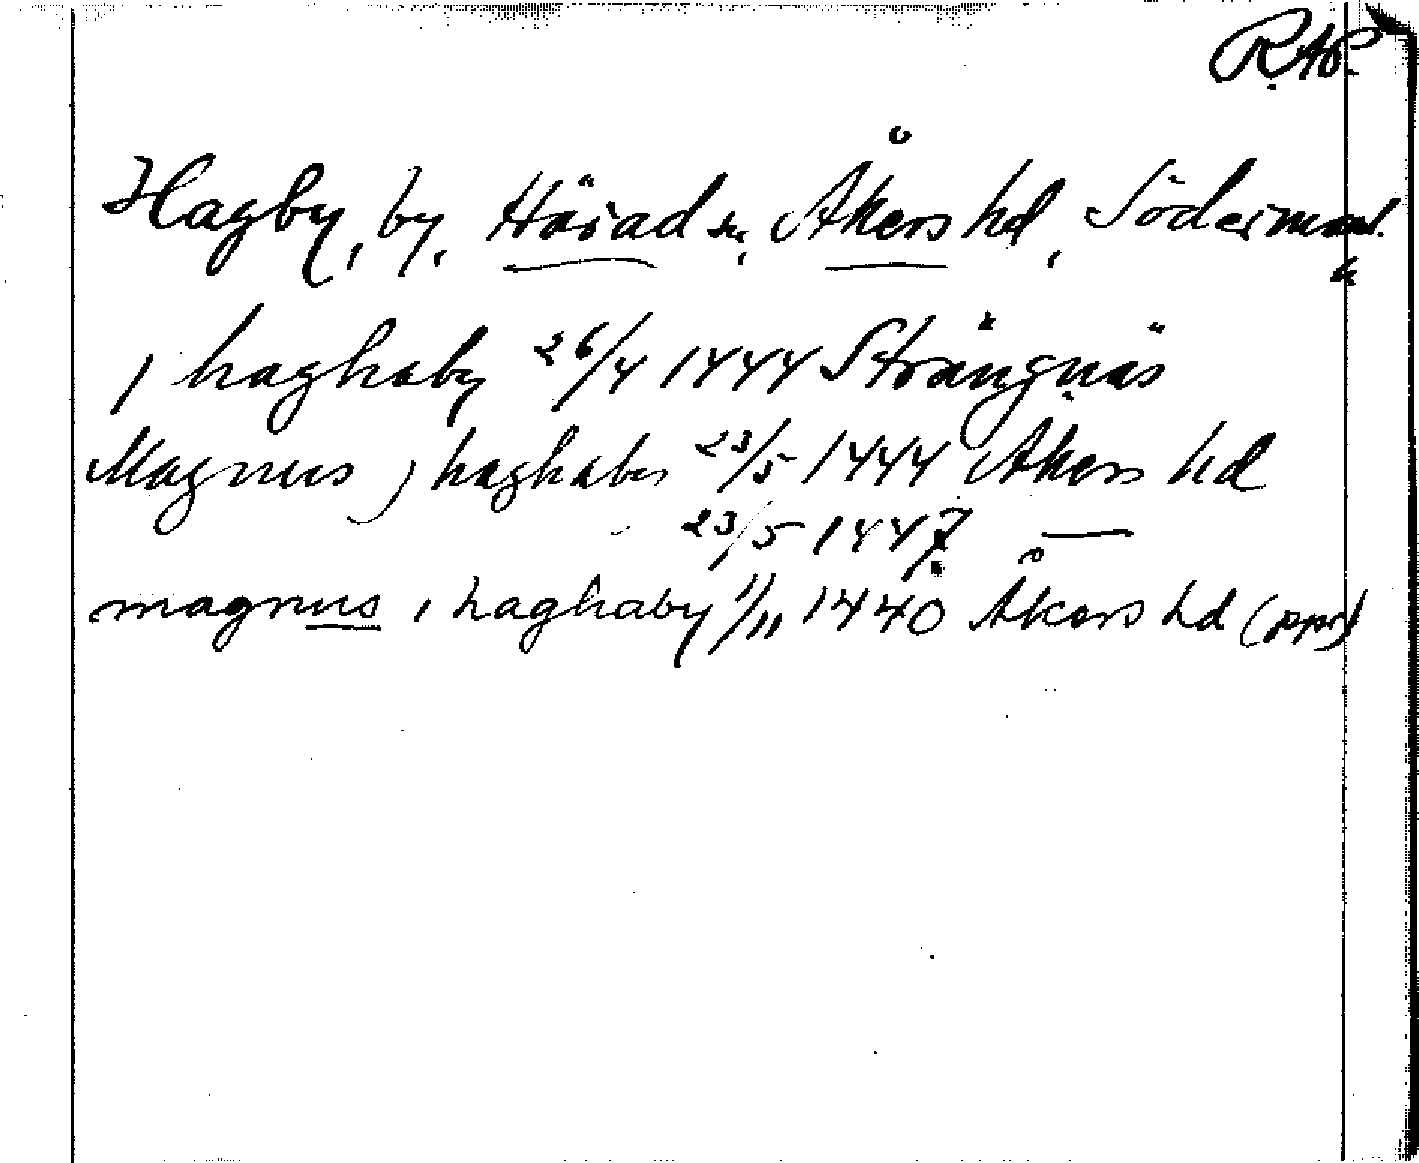 RAP.
Hagby, by, Härad sn, Åkers hd, Södermanl.
j haghaby 26/4 1444 Strängnäs
Magnus j haghaby 23/5 1444 Åkers hd
23/5 1447 —
magnus i haghaby 11/11 1440 Åkers hd (ppr)